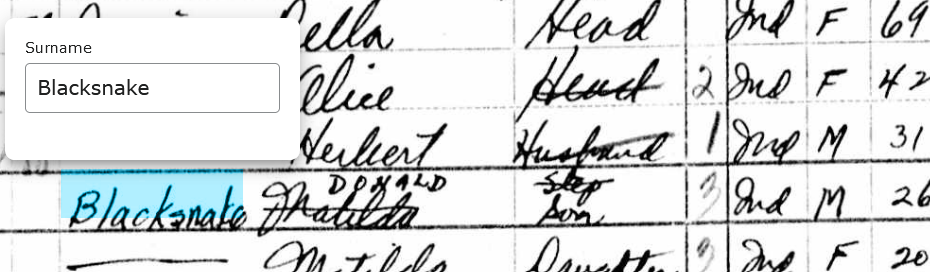 Della Head Ind F 69
Surname
Blacksnake
Alice Head 2 Ind F 42
Herbert Husband 1 Ind M 31
DONALD Step
Blacksnake Matilda Son 3 Ind M 26
Matilda Daughter 3 Ind F 20